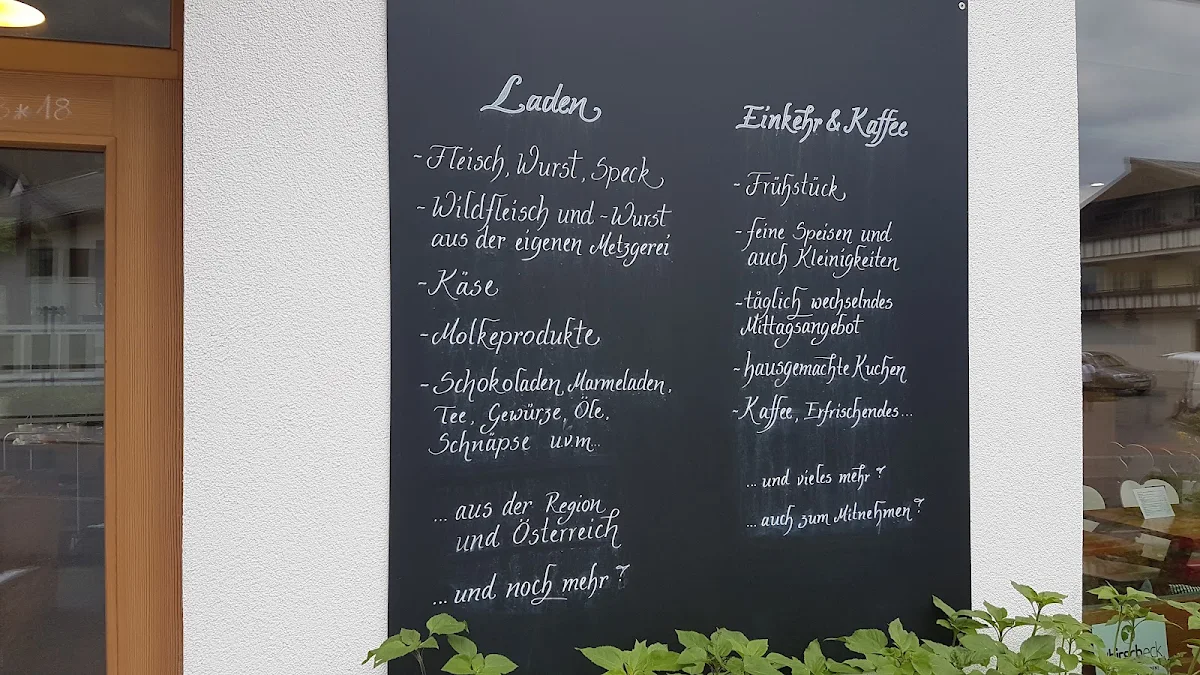 *18
Laden
- Fleisch, Wurst, Speck
- Wildfleisch und -Wurst
aus der eigenen Metzgerei
- Käse
- Molkeprodukte
- Schokoladen, Marmeladen,
Tee, Gewürze, Öle,
Schnäpse uvm...
... aus der Region
und Österreich
... und noch mehr?
Einkehr & Kaffee
- Frühstück
- feine Speisen und
auch Kleinigkeiten
- täglich wechselndes
Mittagsangebot
- hausgemachte Kuchen
- Kaffee, Erfrischendes...
... und vieles mehr?
... auch zum Mitnehmen?